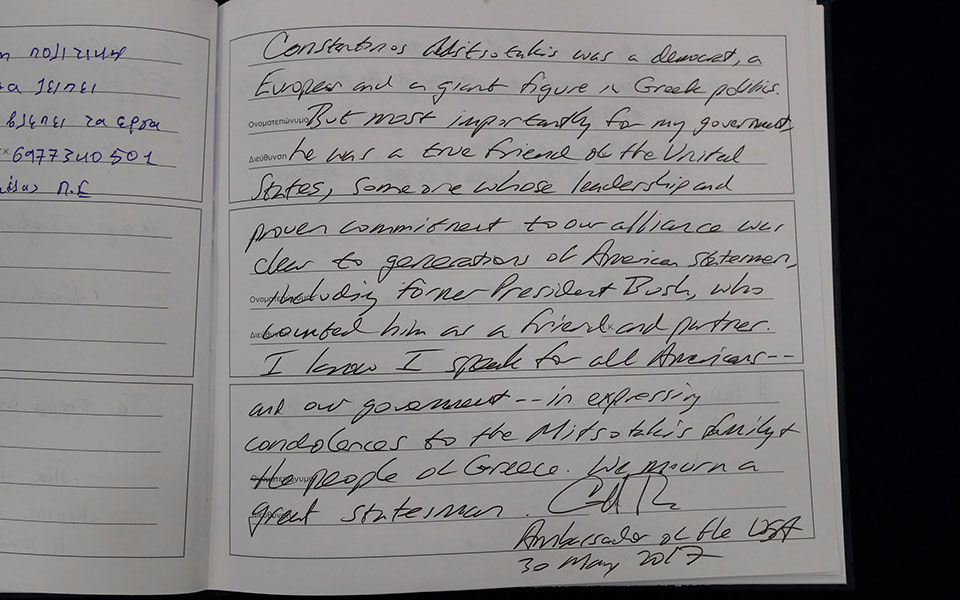 πολιτικη
τα λειπει
βλεπει τα εργα
Τ.Κ. 6977340501
Π.Ε
Constantinos Mitsotakis was a democrat, a
European and a giant figure in Greek politics.
Ονοματεπώνυμο But most importantly for my government,
Διεύθυνση he was a true friend of the United
States, someone whose leadership and
proven commitment to our alliance was
clear to generations of American statesmen,
Ονοματεπώνυμο including former President Bush, who
Διεύθυνση counted him as a friend Τ.Κ. and partner.
I know I speak for all Americans--
and our government -- in expressing
condolences to the Mitsotakis family &
Ονοματεπώνυμο the people of Greece. We mourn a
Διεύθυνση great statesman.
Ambassador of the USA
30 May 2017